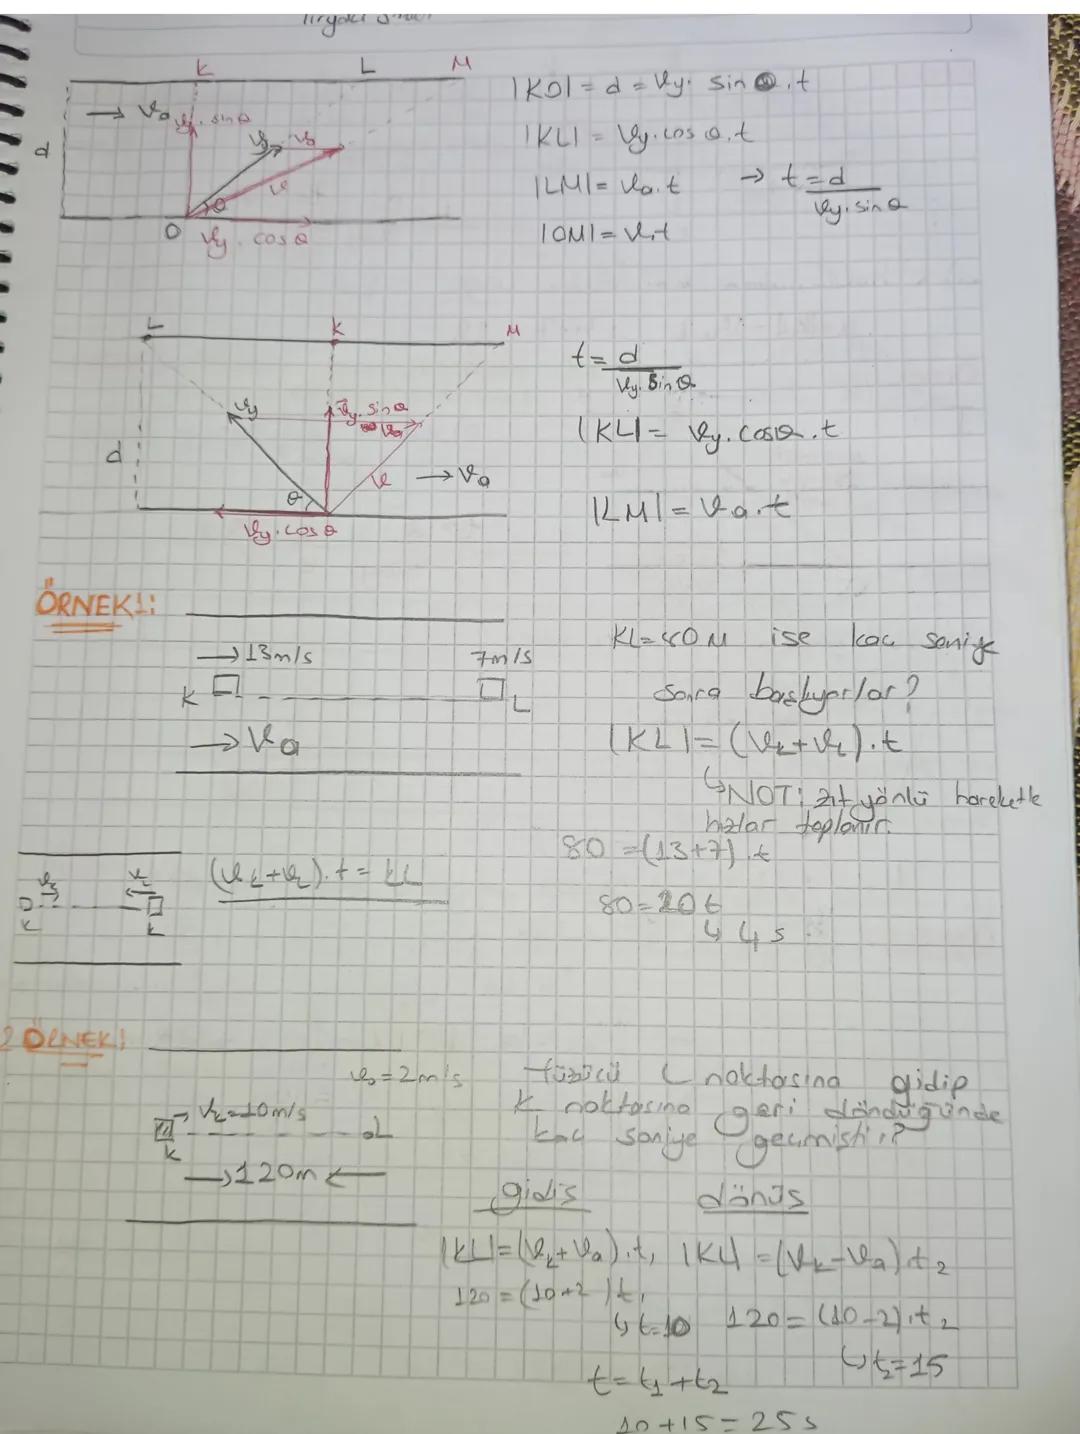 K L M
d
→ Va
Vy.sinθ
Vy Va
V
θ
O Vy.cosθ
|KO| = d = Vy.sinθ.t
|KL| = Vy.cosθ.t
|LM| = Va.t → t = d / Vy.sinθ
|OM| = V.t
L K M
d
Vy
Vy.sinθ
Va
V
→ Va
θ
Vy.cosθ
t = d / Vy.sinθ
|KL| = Vy.cosθ.t
|LM| = Va.t
ÖRNEK1:
→ 13m/s 7m/s
K L
→ Va
KL=80M ise kac saniye
sonra
|KL| = (VK+VL).t
↳ NOT: zıt yönlü hareketle
hızlar toplanır.
80 = (13+7).t
80 = 20t
↳ 4s
VK VL
K L
(VK+VL).t = KL
2 ÖRNEK:
Va = 2m/s
→ VK=10m/s
K L
→ 120m ←
Yüzücü L noktasına gidip
K noktasına geri döndüğünde
kaç saniye geçmiştir?
gidiş dönüş
|KL| = (VK+Va).t1 |KL| = (VK-Va).t2
120 = (10+2)t1
↳ t=10
120 = (10-2).t2
↳ t2=15
t = t1 + t2
10 + 15 = 25s